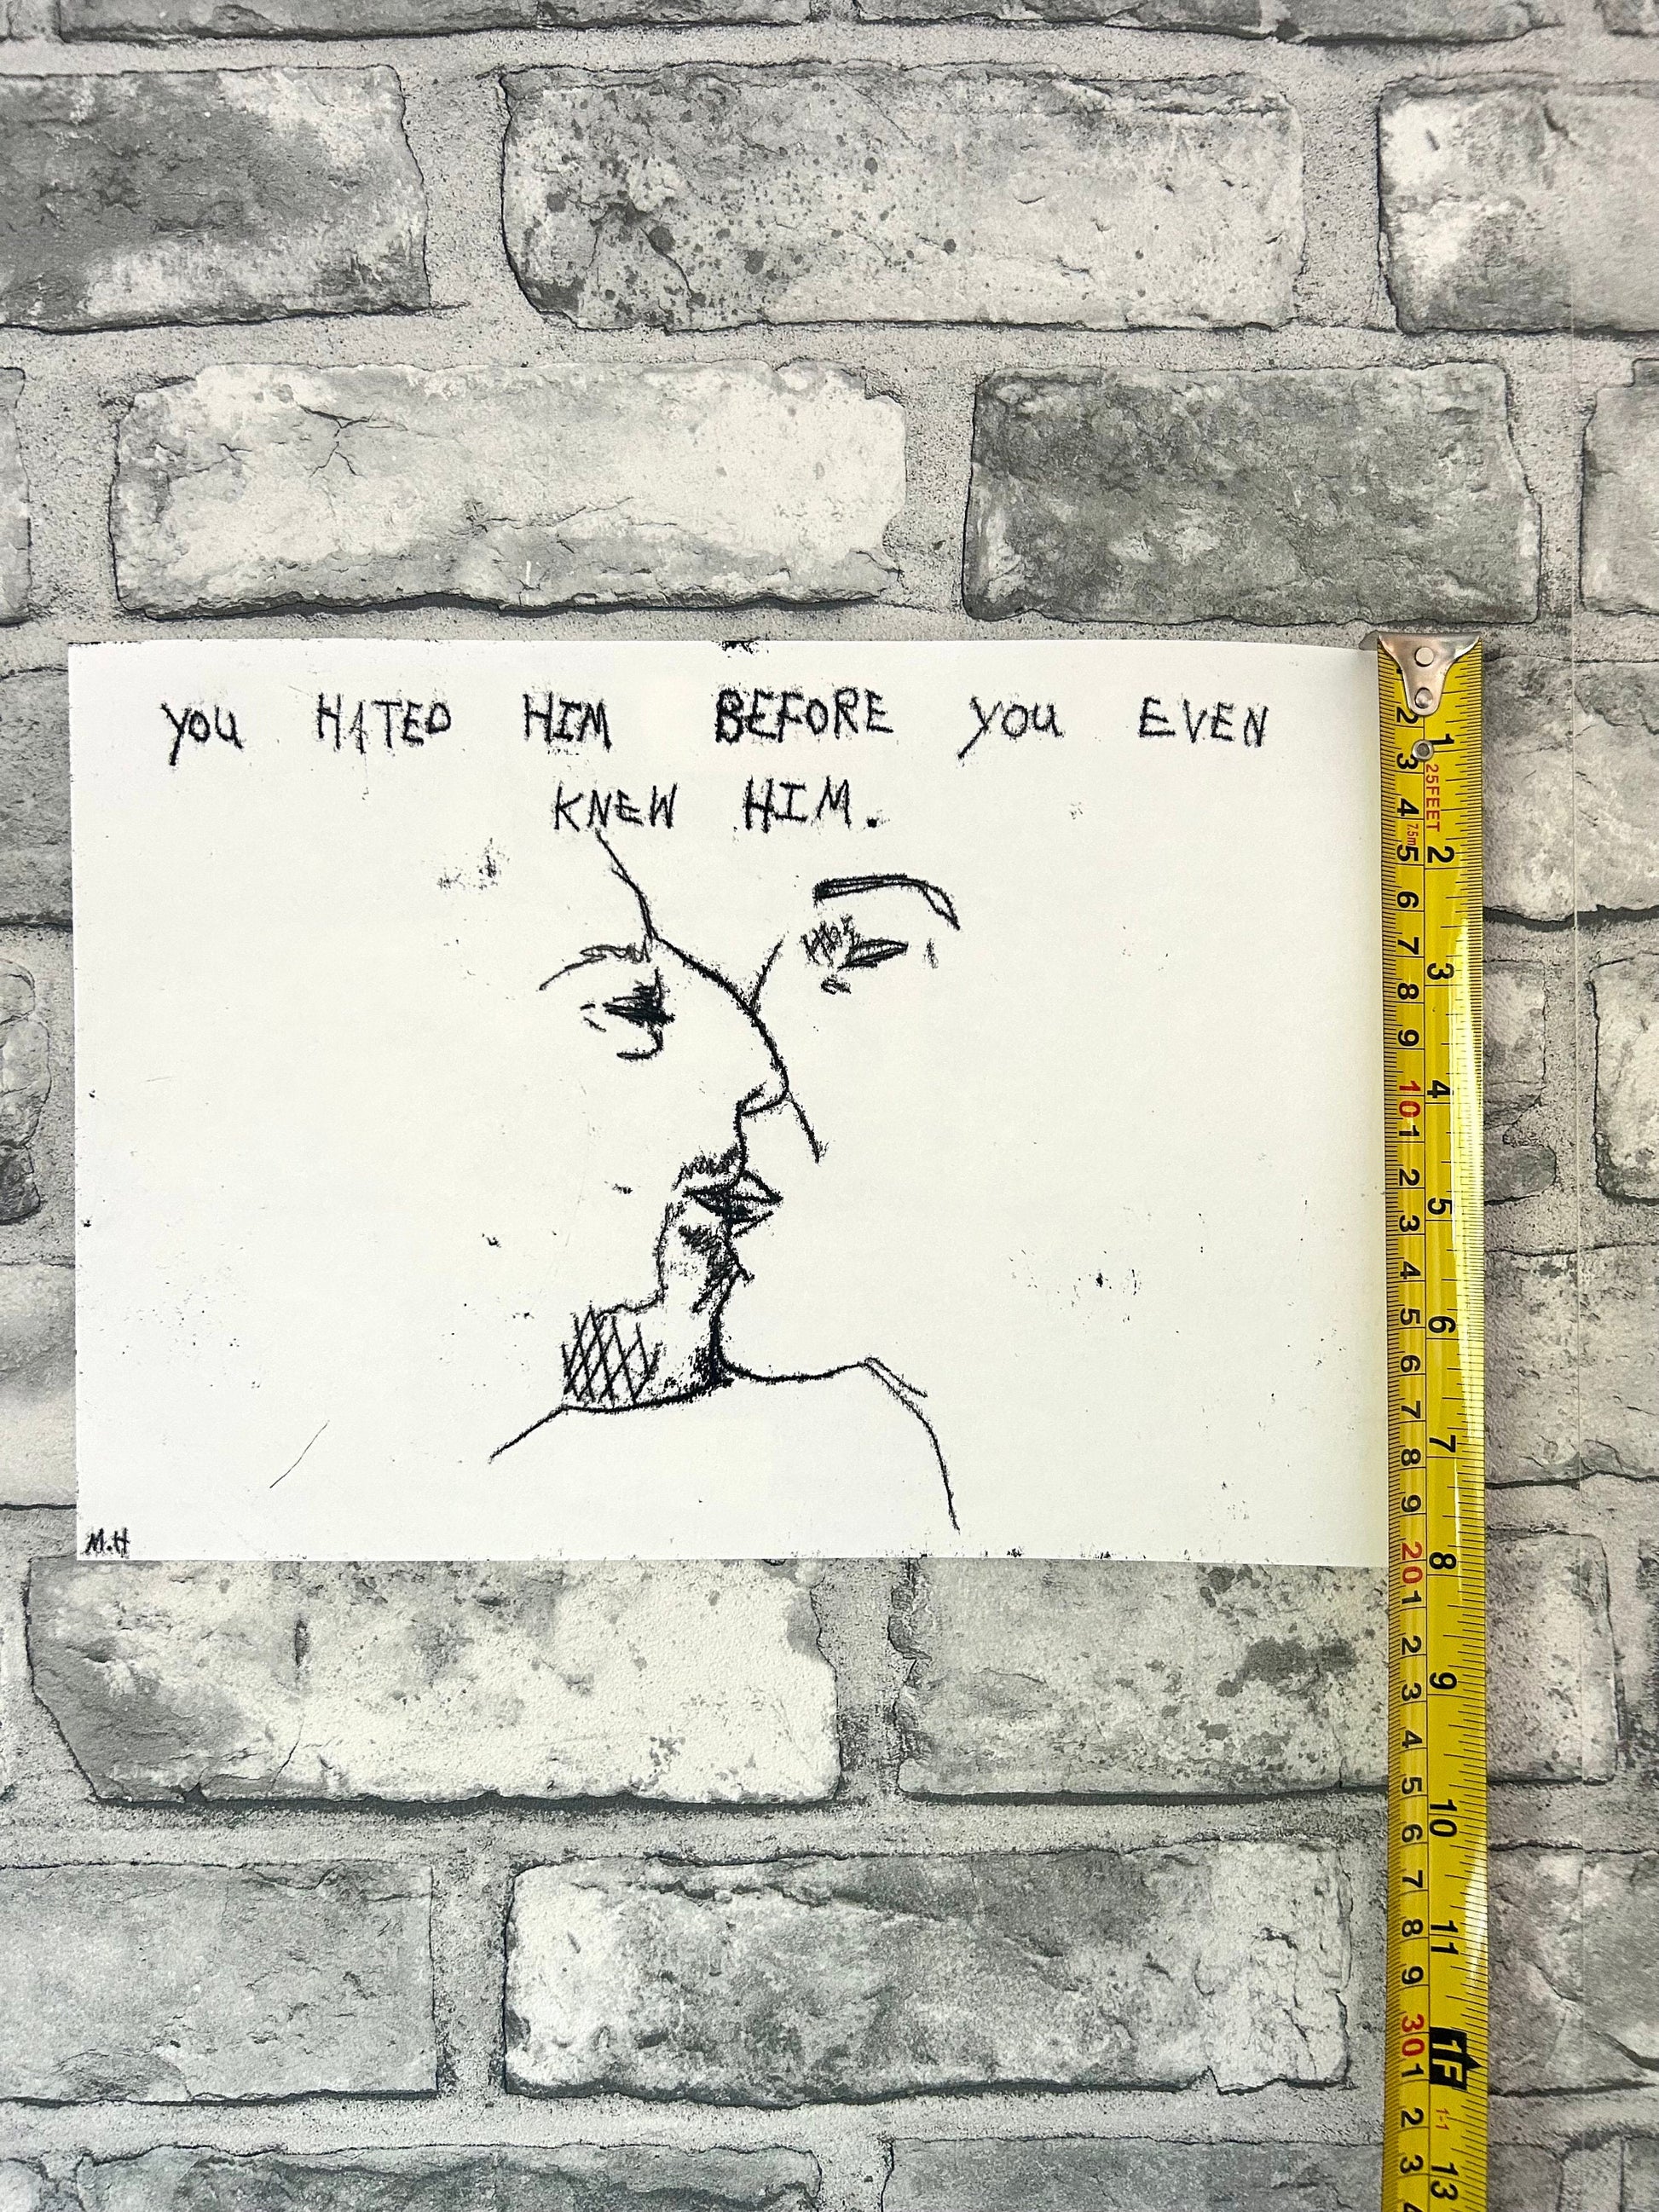 you HATED HIM BEFORE you EVEN
KNEW HIM.
M.H
2
3
4
5
6
7
8
9
10
1
2
3
4
5
6
7
8
9
20
1
2
3
4
5
6
7
8
9
30
1
2
3
4
1
25FEET
7.5m
2
3
4
5
6
7
8
9
10
11
1F
1-1
13